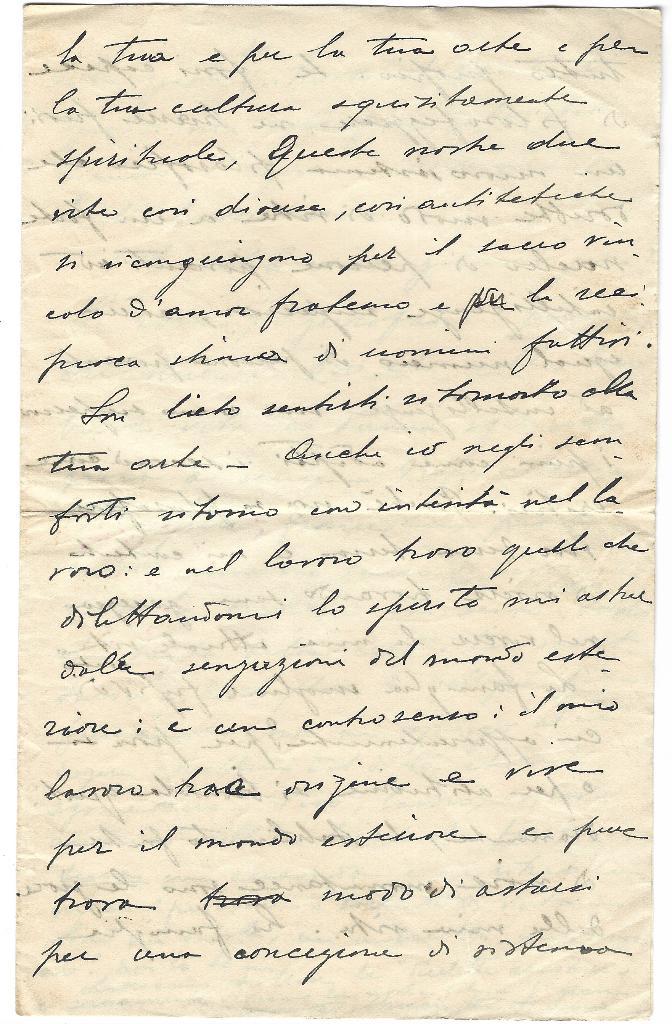 la tua e per la tua arte e per
la tua cultura squisitamente
spirituale, Queste nostre due
vite così diverse, così antitetiche
si ricongiungono per il sacro vin-
colo d'amor fraterno e per la reci
proca stima di uomini fattivi.
Son lieto sentirti ritornato alla
tua arte - Anche io negli scon-
forti ritorno con intensità nel la-
voro: e nel lavoro trovo quell che
dilettandomi lo spirito mi astrae
dalle sensazioni del mondo este-
riore: è un controsenso: il mio
lavoro trae origine e vive
per il mondo esteriore e pure
trova trova modo di astrarsi
per una concezione di sistema